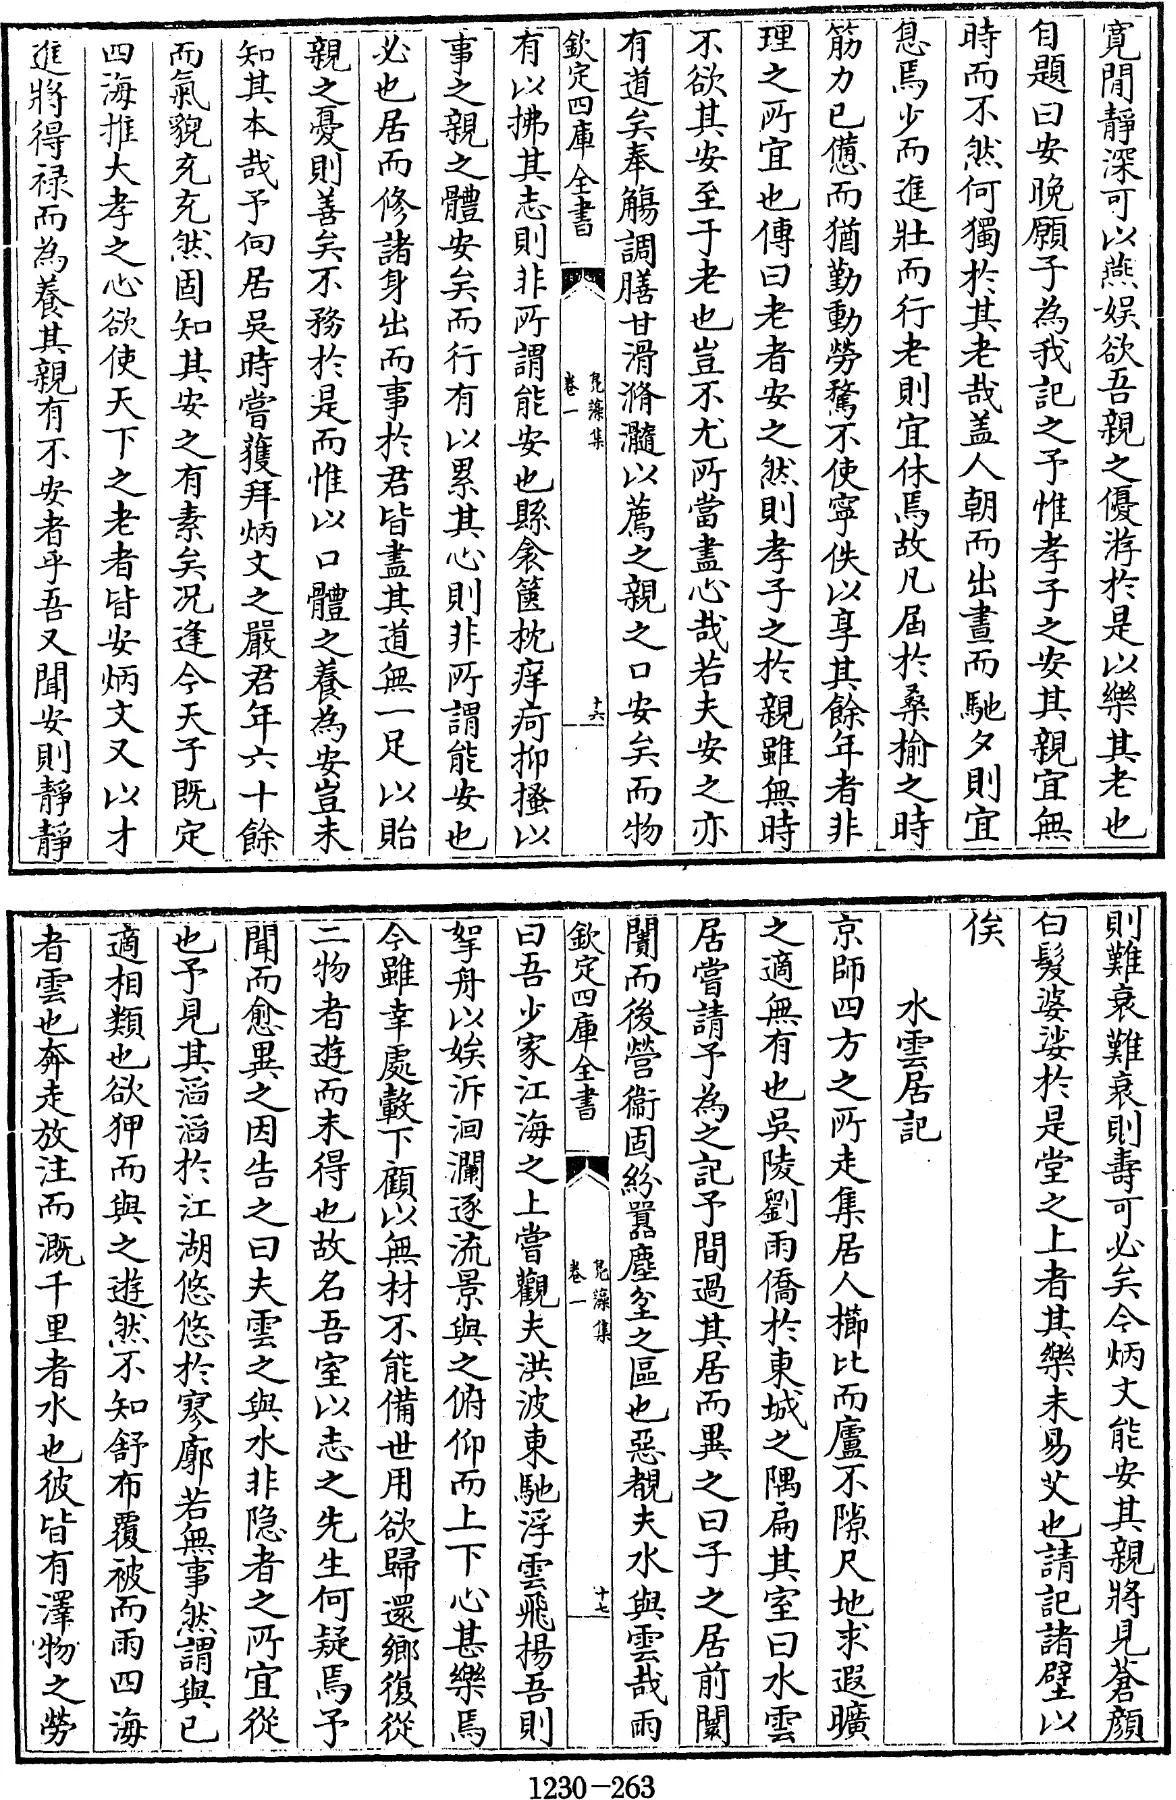 寛閒靜深可以燕娛欲吾親之優游於是以樂其老也
自題曰安晚願子為我記之予惟孝子之安其親宜無
時而不然何獨於其老哉盖人朝而出晝而馳夕則宜
息焉少而進壯而行老則宜休焉故凡屆於桑榆之時
筋力已憊而猶勤動勞騖不使寧佚以享其餘年者非
理之所宜也傳曰老者安之然則孝子之於親雖無時
不欲其安至于老也豈不尤所當盡心哉若夫安之亦
有道矣奉觴調膳甘滑滫瀡以薦之親之口安矣而物
欽定四庫全書
鳧藻集
卷一
十六
有以拂其志則非所謂能安也縣衾篋枕痒疴抑搔以
事之親之體安矣而行有以累其心則非所謂能安也
必也居而修諸身出而事於君皆盡其道無一足以貽
親之憂則善矣不務於是而惟以口體之養為安豈未
知其本哉予向居吳時嘗獲拜炳文之嚴君年六十餘
而氣貌充充然固知其安之有素矣况逢今天子既定
四海推大孝之心欲使天下之老者皆安炳文又以才
進將得祿而為養其親有不安者乎吾又聞安則靜靜
則難衰難衰則壽可必矣今炳文能安其親將見蒼顔
白髮婆娑於是堂之上者其樂未易艾也請記諸壁以
俟
水雲居記
京師四方之所走集居人櫛比而廬不隙尺地求遐曠
之適無有也吳陵劉雨僑於東城之隅扁其室曰水雲
居嘗請予為之記予間過其居而異之曰子之居前闤
闠而後營衞固紛囂塵坌之區也惡覩夫水與雲哉雨
欽定四庫全書
鳧藻集
卷一
十七
曰吾少家江海之上嘗觀夫洪波東馳浮雲飛揚吾則
挐舟以娭泝洄瀾逐流景與之俯仰而上下心甚樂焉
今雖幸處轂下顧以無材不能備世用欲歸還鄉復從
二物者遊而未得也故名吾室以志之先生何疑焉予
聞而愈異之因告之曰夫雲之與水非隐者之所宜從
也予見其滔滔於江湖悠悠於寥廓若無事然謂與已
適相類也欲狎而與之遊然不知舒布覆被而雨四海
者雲也奔走放注而溉千里者水也彼皆有澤物之勞
1230-263